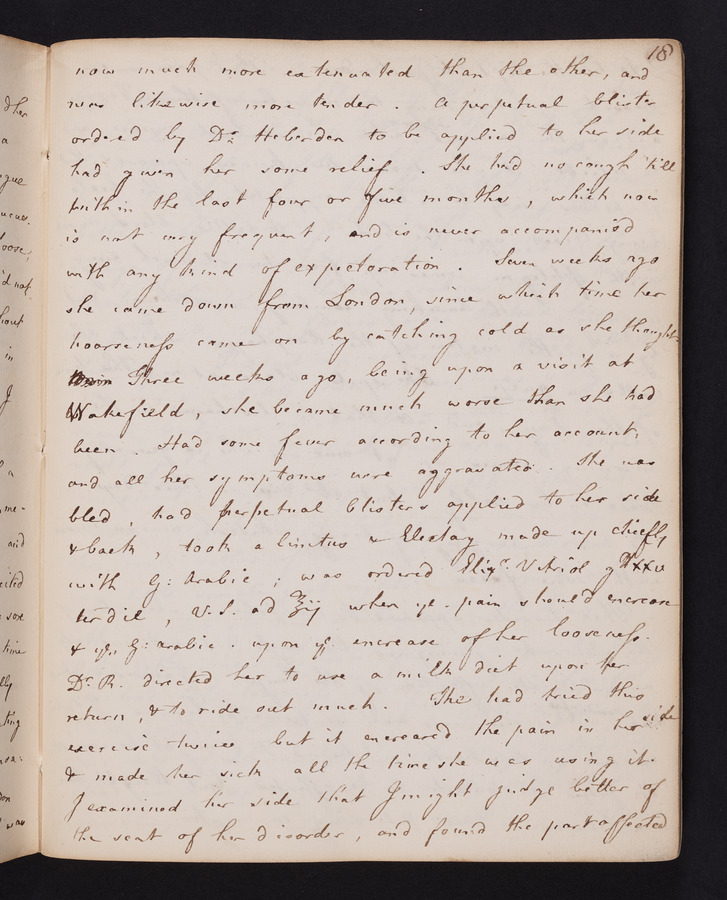 18
now much more extenuated than the other, and
was likewise more tender. A perpetual blister
ordered by Dr. Heberden to be applied to her side
had given her some relief. She had no cough 'till
within the last four or five months, which now
is not very frequent, and is never accompanied
with any kind of expectoration. Seven weeks ago
she came down from London, since which time her
hoarseness came on by catching cold as she thought
Three weeks ago, being upon a visit at
Wakefield, she became much worse than she had
been. Had some fever according to her account,
and all her symptoms were aggravated. She was
bled, had perpetual blisters applied to her side
& back, took a linctus & Electay made up chiefly
with G: Arabic; was ordered Elixr. Vitriol gtt xxv
ter die, V.S. ad ʒij when ye. pain should encrease
& ye, G: Arabic. upon ye. encrease of her looseness.
Dr. R. directed her to use a milk diet upon her
return, & to ride out much. She had tried this
exercise twice but it encreased the pain in her side
& made her sick all the time she was using it.
I examined her side that I might judge better of
the seat of her disorder, and found the part affected